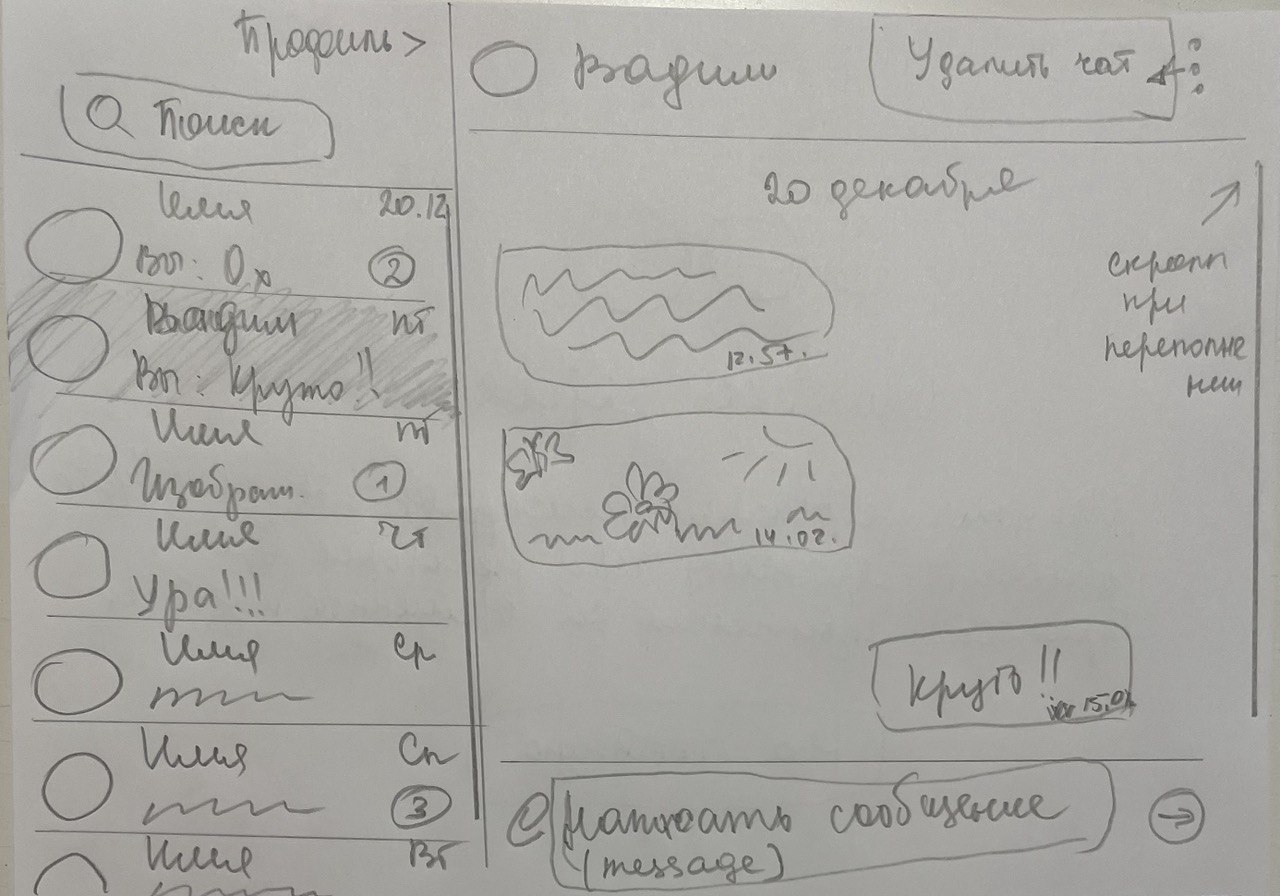 Профиль >
Поиск
Имя 20.12
Вы: Ох 2
Вадим пт
Вы: Круто!!
Имя пт
Изображ. 1
Имя Чт
Ура!!!
Имя Ср
Имя Ср
3
Имя Вт
Вадим
Удалить чат
20 декабря
скролл
при
переполне
нии
12.57.
14.02.
Круто!!
15.01
Написать сообщение
(message)